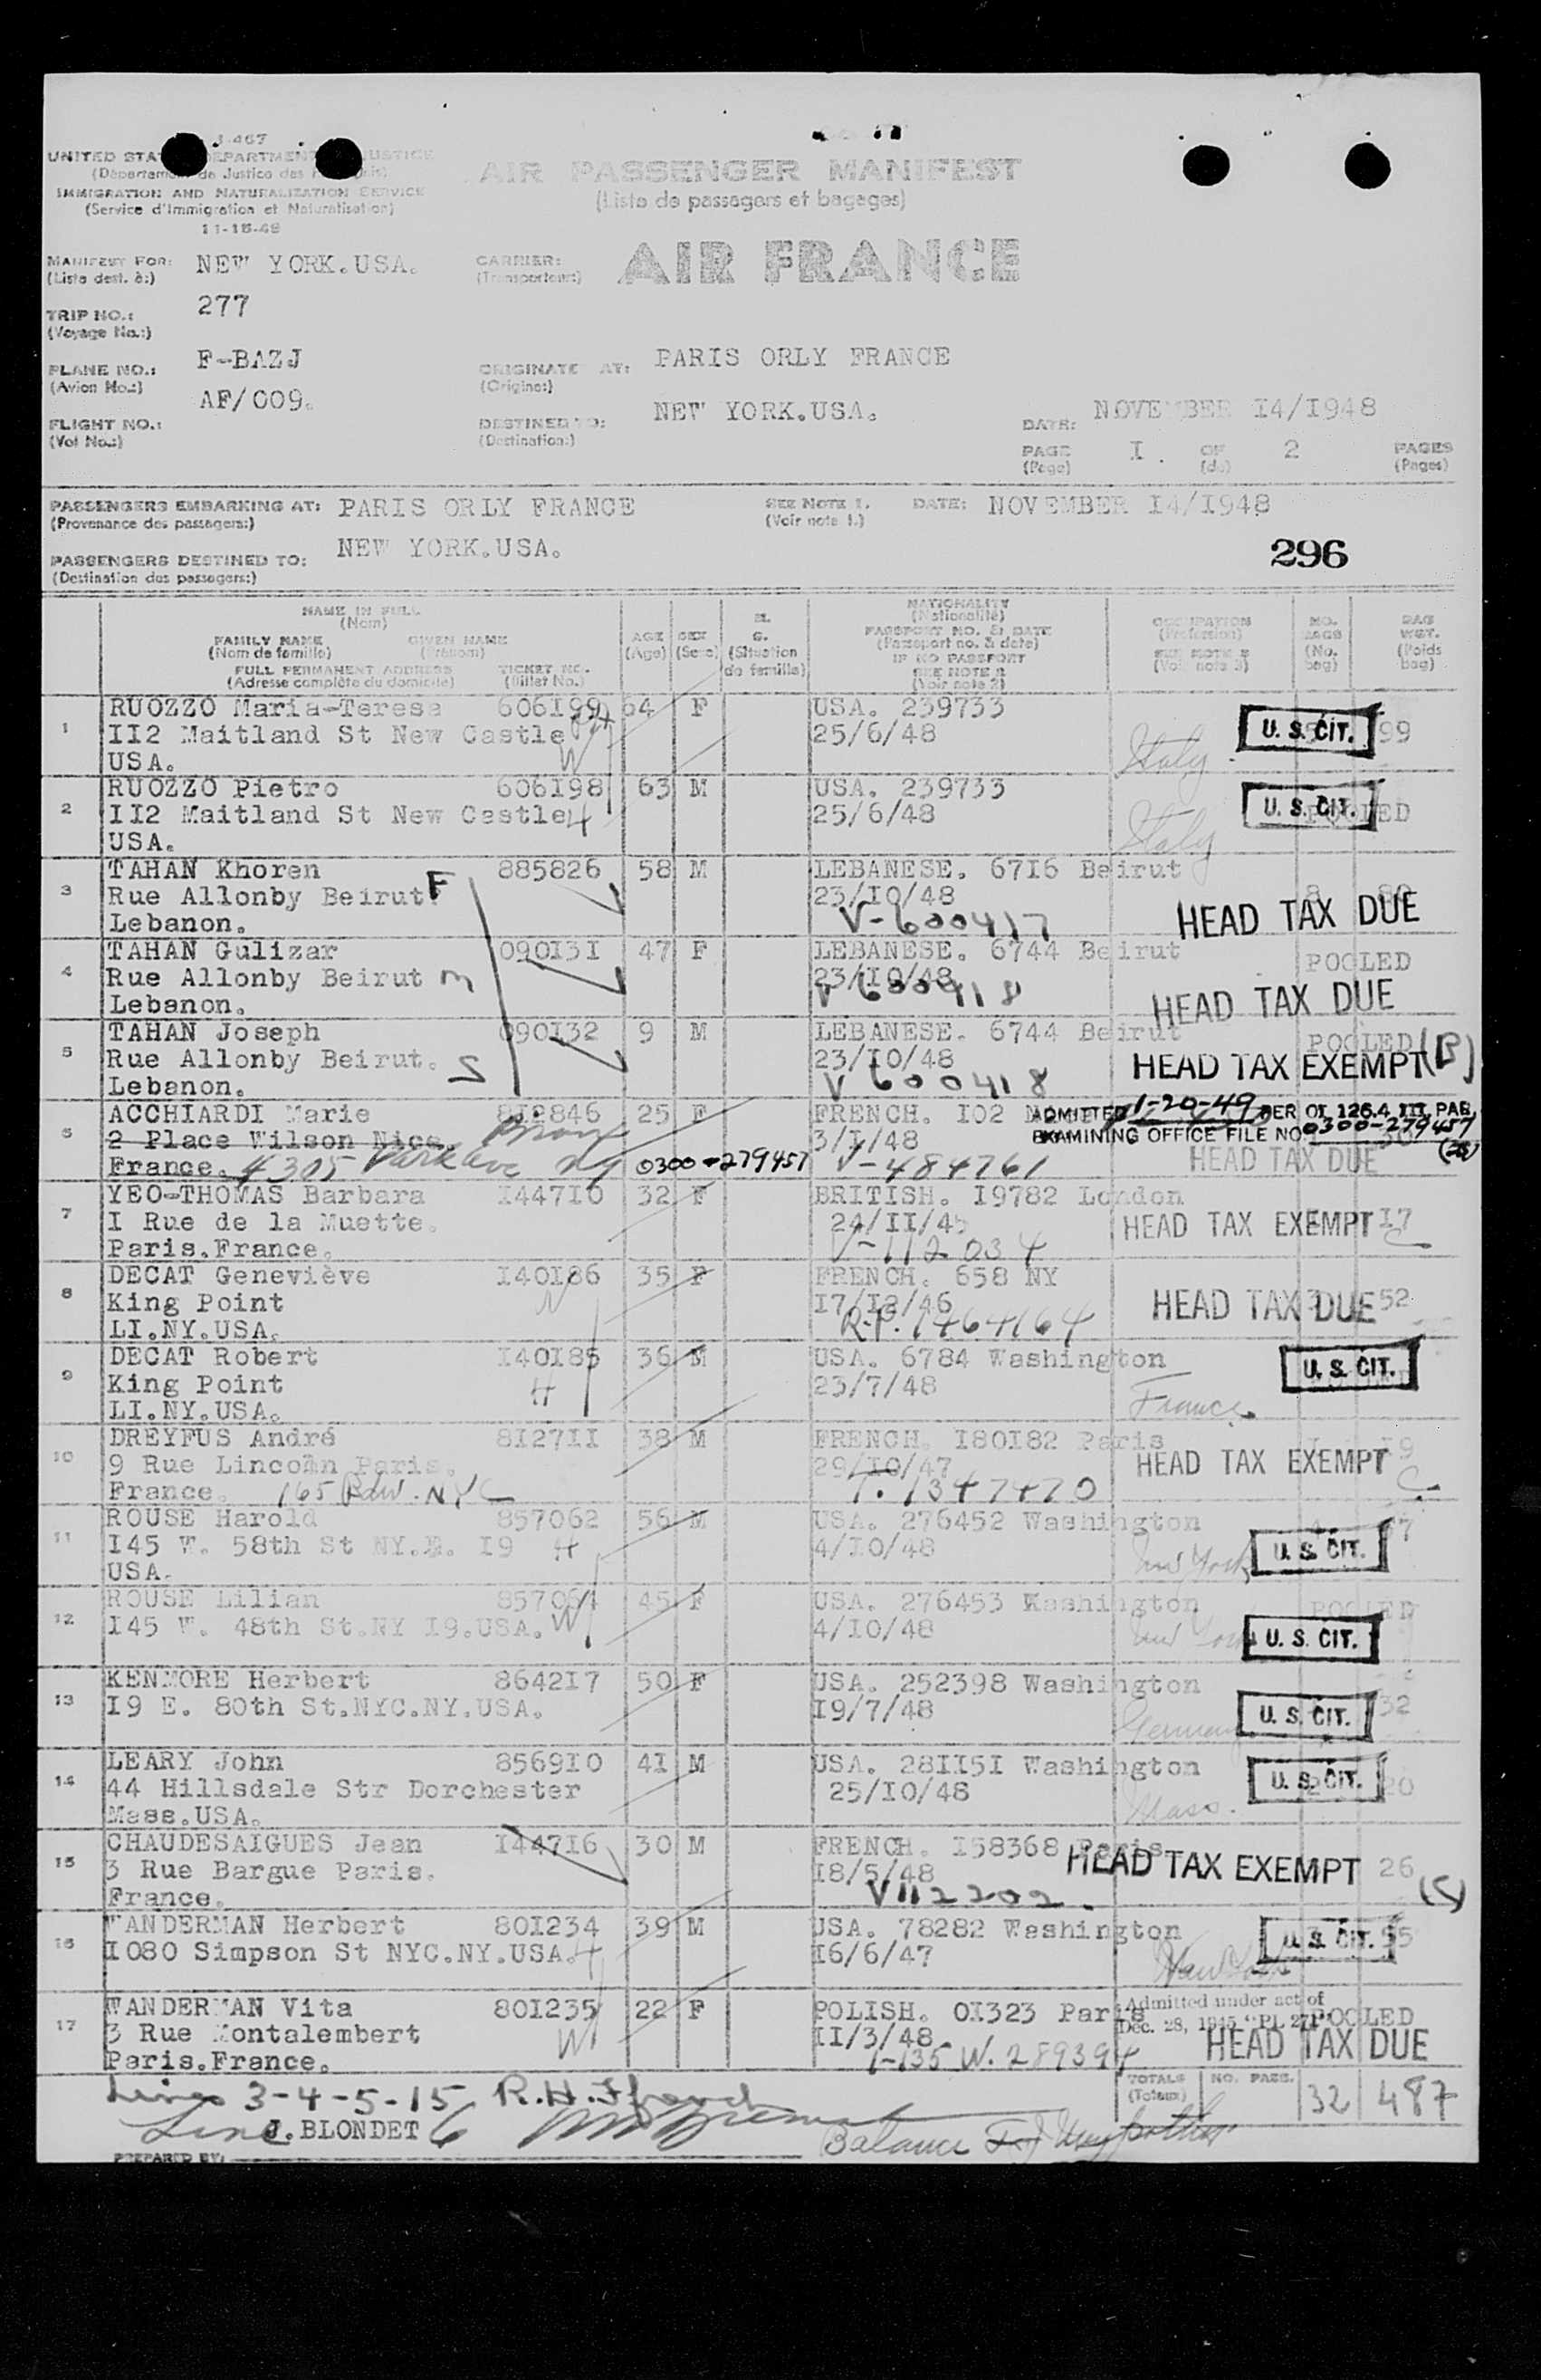 I-467
UNITED STATES DEPARTMENT OF JUSTICE
IMMIGRATION AND NATURALIZATION SERVICE
(Service d'Immigration et Naturalisation)
11-18-48
AIR PASSENGER MANIFEST
(Liste de passagers et bagages)
MANIFEST FOR: NEW YORK.USA.
(Liste dest. à:)
CARRIER: AIR FRANCE
(Transporteur:)
TRIP NO.: 277
(Voyage No.:)
PLANE NO.: F-BAZJ
(Avion No.:)
ORIGINATE AT: PARIS ORLY FRANCE
(Origine:)
FLIGHT NO.: AF/009.
(Vol No.:)
DESTINED TO: NEW YORK.USA.
(Destination:)
DATE: NOVEMBER I4/I948
PAGE I. OF 2 PAGES
(Page) (de) (Pages)
PASSENGERS EMBARKING AT: PARIS ORLY FRANCE SEE NOTE 1. DATE: NOVEMBER I4/I948
(Provenance des passagers:) (Voir note 1.)
PASSENGERS DESTINED TO: NEW YORK.USA.
(Destination des passagers:)
296
NAME IN FULL
(Nom)
FAMILY NAME GIVEN NAME
(Nom de famille) (Prénom)
FULL PERMANENT ADDRESS TICKET NO.
(Adresse complète du domicile) (Billet No.)
AGE SEX
(Age) (Sexe)
M. S.
(Situation de famille)
NATIONALITY
(Nationalité)
PASSPORT NO. & DATE
(Passeport no. & date)
IF NO PASSPORT
SEE NOTE 2
(Voir note 2)
OCCUPATION
(Profession)
SEE NOTE 3
(Voir note 3)
NO. BAGS
(No. bag)
BAG WGT.
(Poids bag)
1 RUOZZO Maria-Teresa 606I99 64 F USA. 239733
II2 Maitland St New Castle W 25/6/48 Italy U. S. CIT. 99
USA.
2 RUOZZO Pietro 606I98 63 M USA. 239733
II2 Maitland St New Castle H 25/6/48 Italy U. S. CIT. POOLED
USA.
3 TAHAN Khoren 885826 58 M LEBANESE. 67I6 Beirut
Rue Allonby Beirut F 23/I0/48 HEAD TAX DUE
Lebanon. V-600417
4 TAHAN Gulizar 090I3I 47 F LEBANESE. 6744 Beirut POOLED
Rue Allonby Beirut m 23/I0/48 HEAD TAX DUE
Lebanon. V 600418
5 TAHAN Joseph 090I32 9 M LEBANESE. 6744 Beirut POOLED
Rue Allonby Beirut. S 23/I0/48 HEAD TAX EXEMPT (B)
Lebanon. V 600418
6 ACCHIARDI Marie 8I2846 25 F FRENCH. I02
ADMITTED 1-20-49 PER OI 126.4 III PAR.
2 Place Wilson Nice 3/I/48 EXAMINING OFFICE FILE NO. 0300-279457
France. 4305 Park Ave NY 0300-279457 V-484761 HEAD TAX DUE
7 YEO-THOMAS Barbara I447I0 32 F BRITISH. I9782 London
I Rue de la Muette. 24/II/45 HEAD TAX EXEMPT I7
Paris.France. V-112034 C
8 DECAT Geneviève I40I86 35 F FRENCH. 658 NY
King Point 17/I2/46 HEAD TAX DUE 52
LI.NY.USA. R.P. 1464164
9 DECAT Robert I40I85 36 M USA. 6784 Washington
King Point H 23/7/48 U. S. CIT.
LI.NY.USA. France
10 DREYFUS André 8I27II 38 M FRENCH. I80I82 Paris
9 Rue Lincoln Paris. 29/I0/47 HEAD TAX EXEMPT I9
France. T. 1347470 C.
11 ROUSE Harold 857062 56 M USA. 276452 Washington
I45 W. 58th St NY. I9 H 4/I0/48 New York U. S. CIT.
USA.
12 ROUSE Lilian 85706I 45 F USA. 276453 Washington POOLED
I45 W. 48th St.NY I9.USA. W 4/I0/48 New York U. S. CIT.
13 KENMORE Herbert 8642I7 50 F USA. 252398 Washington
I9 E. 80th St.NYC.NY.USA. I9/7/48 Germany U. S. CIT. 32
14 LEARY John 8569I0 4I M USA. 28II5I Washington
44 Hillsdale Str Dorchester 25/I0/48 U. S. CIT. 20
Mass.USA. Mass.
15 CHAUDESAIGUES Jean I447I6 30 M FRENCH. I58368 Paris
3 Rue Bargue Paris. I8/5/48 HEAD TAX EXEMPT 26
France. V112202 (C)
16 WANDERMAN Herbert 80I234 39 M USA. 78282 Washington
I080 Simpson St NYC.NY.USA. H I6/6/47 New York U. S. CIT.
17 WANDERMAN Vita 80I235 22 F POLISH. 0I323 Paris Admitted under act of
3 Rue Montalembert W II/3/48 Dec. 28, 1945 "PL 271" POOLED
Paris.France. HEAD TAX DUE
TOTALS NO. PASS. 32 487
(Totaux)
Lines 3-4-5-15
Line 6
J. BLONDET
Balance
PREPARED BY: